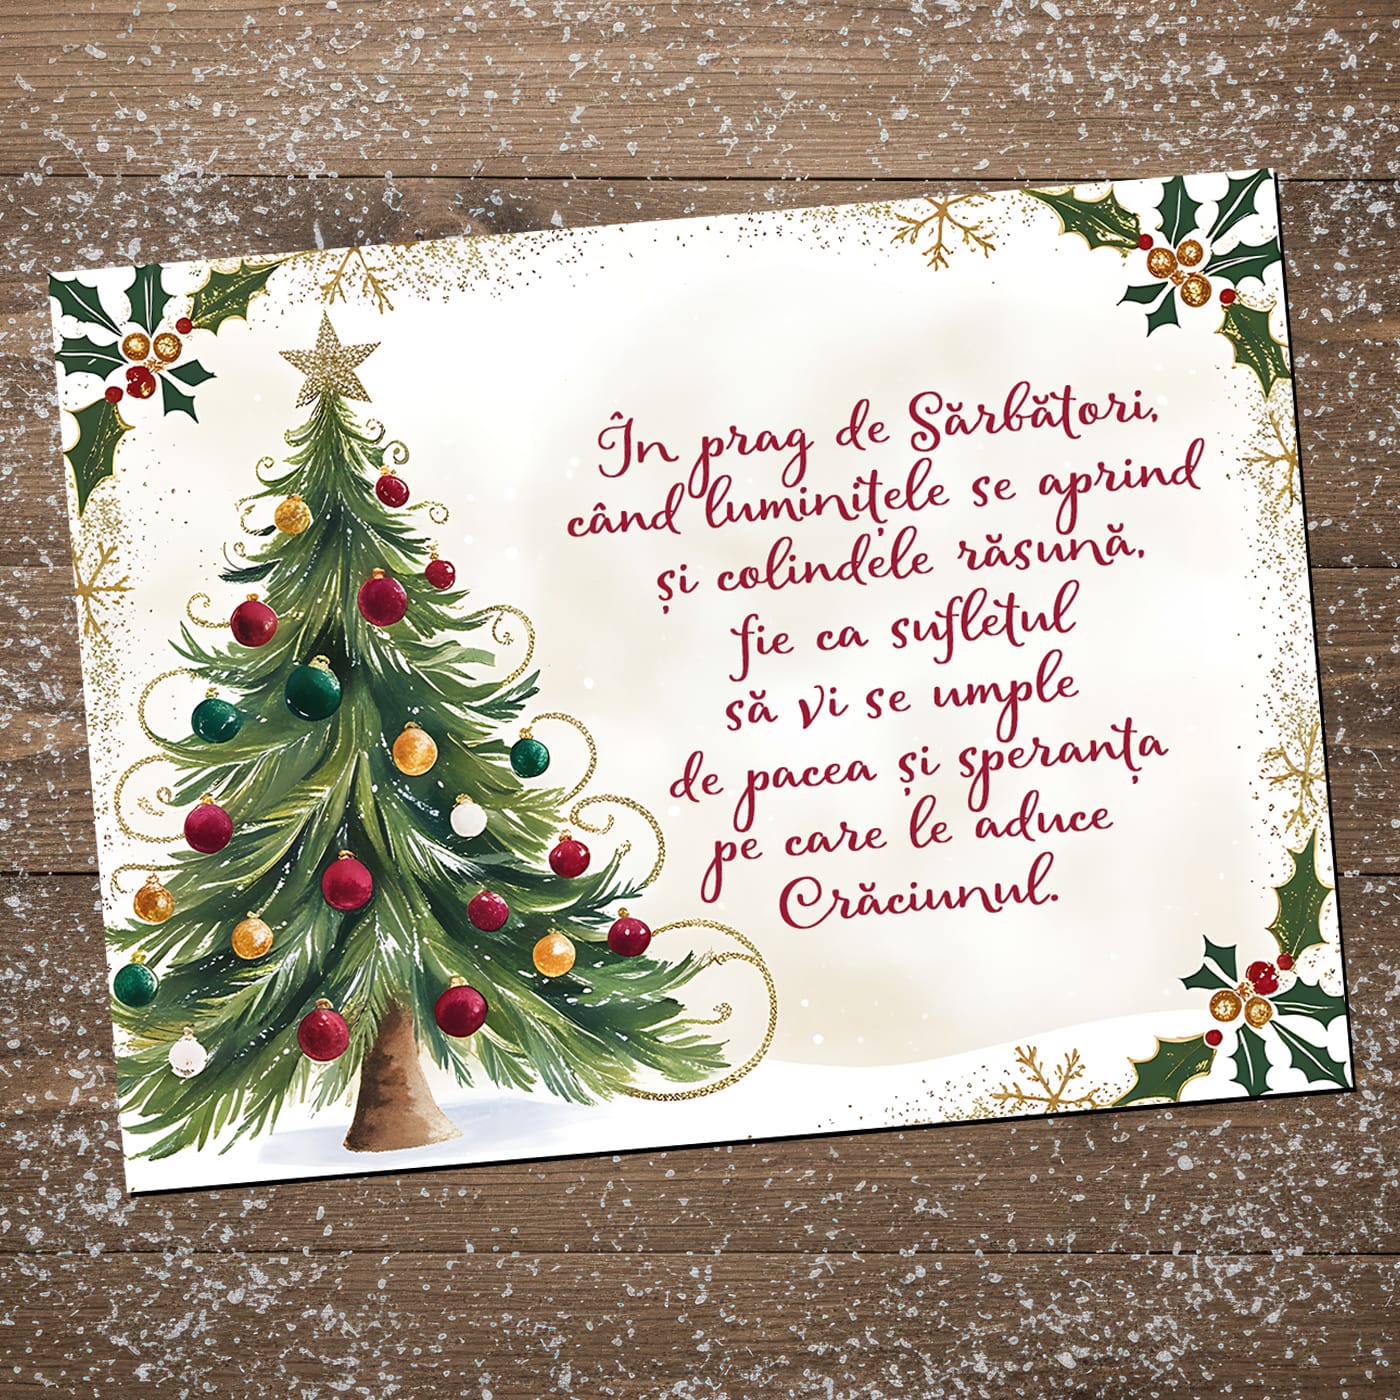 În prag de Sărbători,
când luminițele se aprind
și colindele răsună,
fie ca sufletul
să vi se umple
de pacea și speranța
pe care le aduce
Crăciunul.